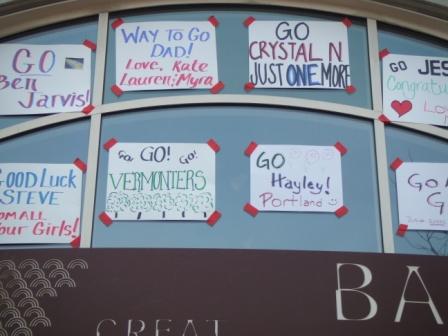 GO
Ben
Jarvis!
WAY TO GO
DAD!
Love, Kate
Lauren, Myra
GO
CRYSTAL N
JUST ONE MORE
GO JES
Congratu
LO
GOOD LUCK
STEVE
FROM ALL
Your Girls!
Go! GO! Go!
VERMONTERS
GO
Hayley!
Portland
GO
G
GREAT
BA